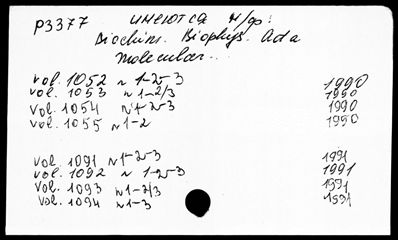 P3377 имеются н/др:
Biochim. Biophys. Acta
Molecular...
vol. 1052 n 1-2-3 1990
vol. 1053 n 1-2/3 1990
vol. 1054 n 1-2-3 1990
vol. 1055 n 1-2 1990
vol. 1091 n 1-2-3 1991
vol. 1092 n 1-2-3 1991
vol. 1093 n 1-2/3 1991
vol. 1094 n 1-3 1991